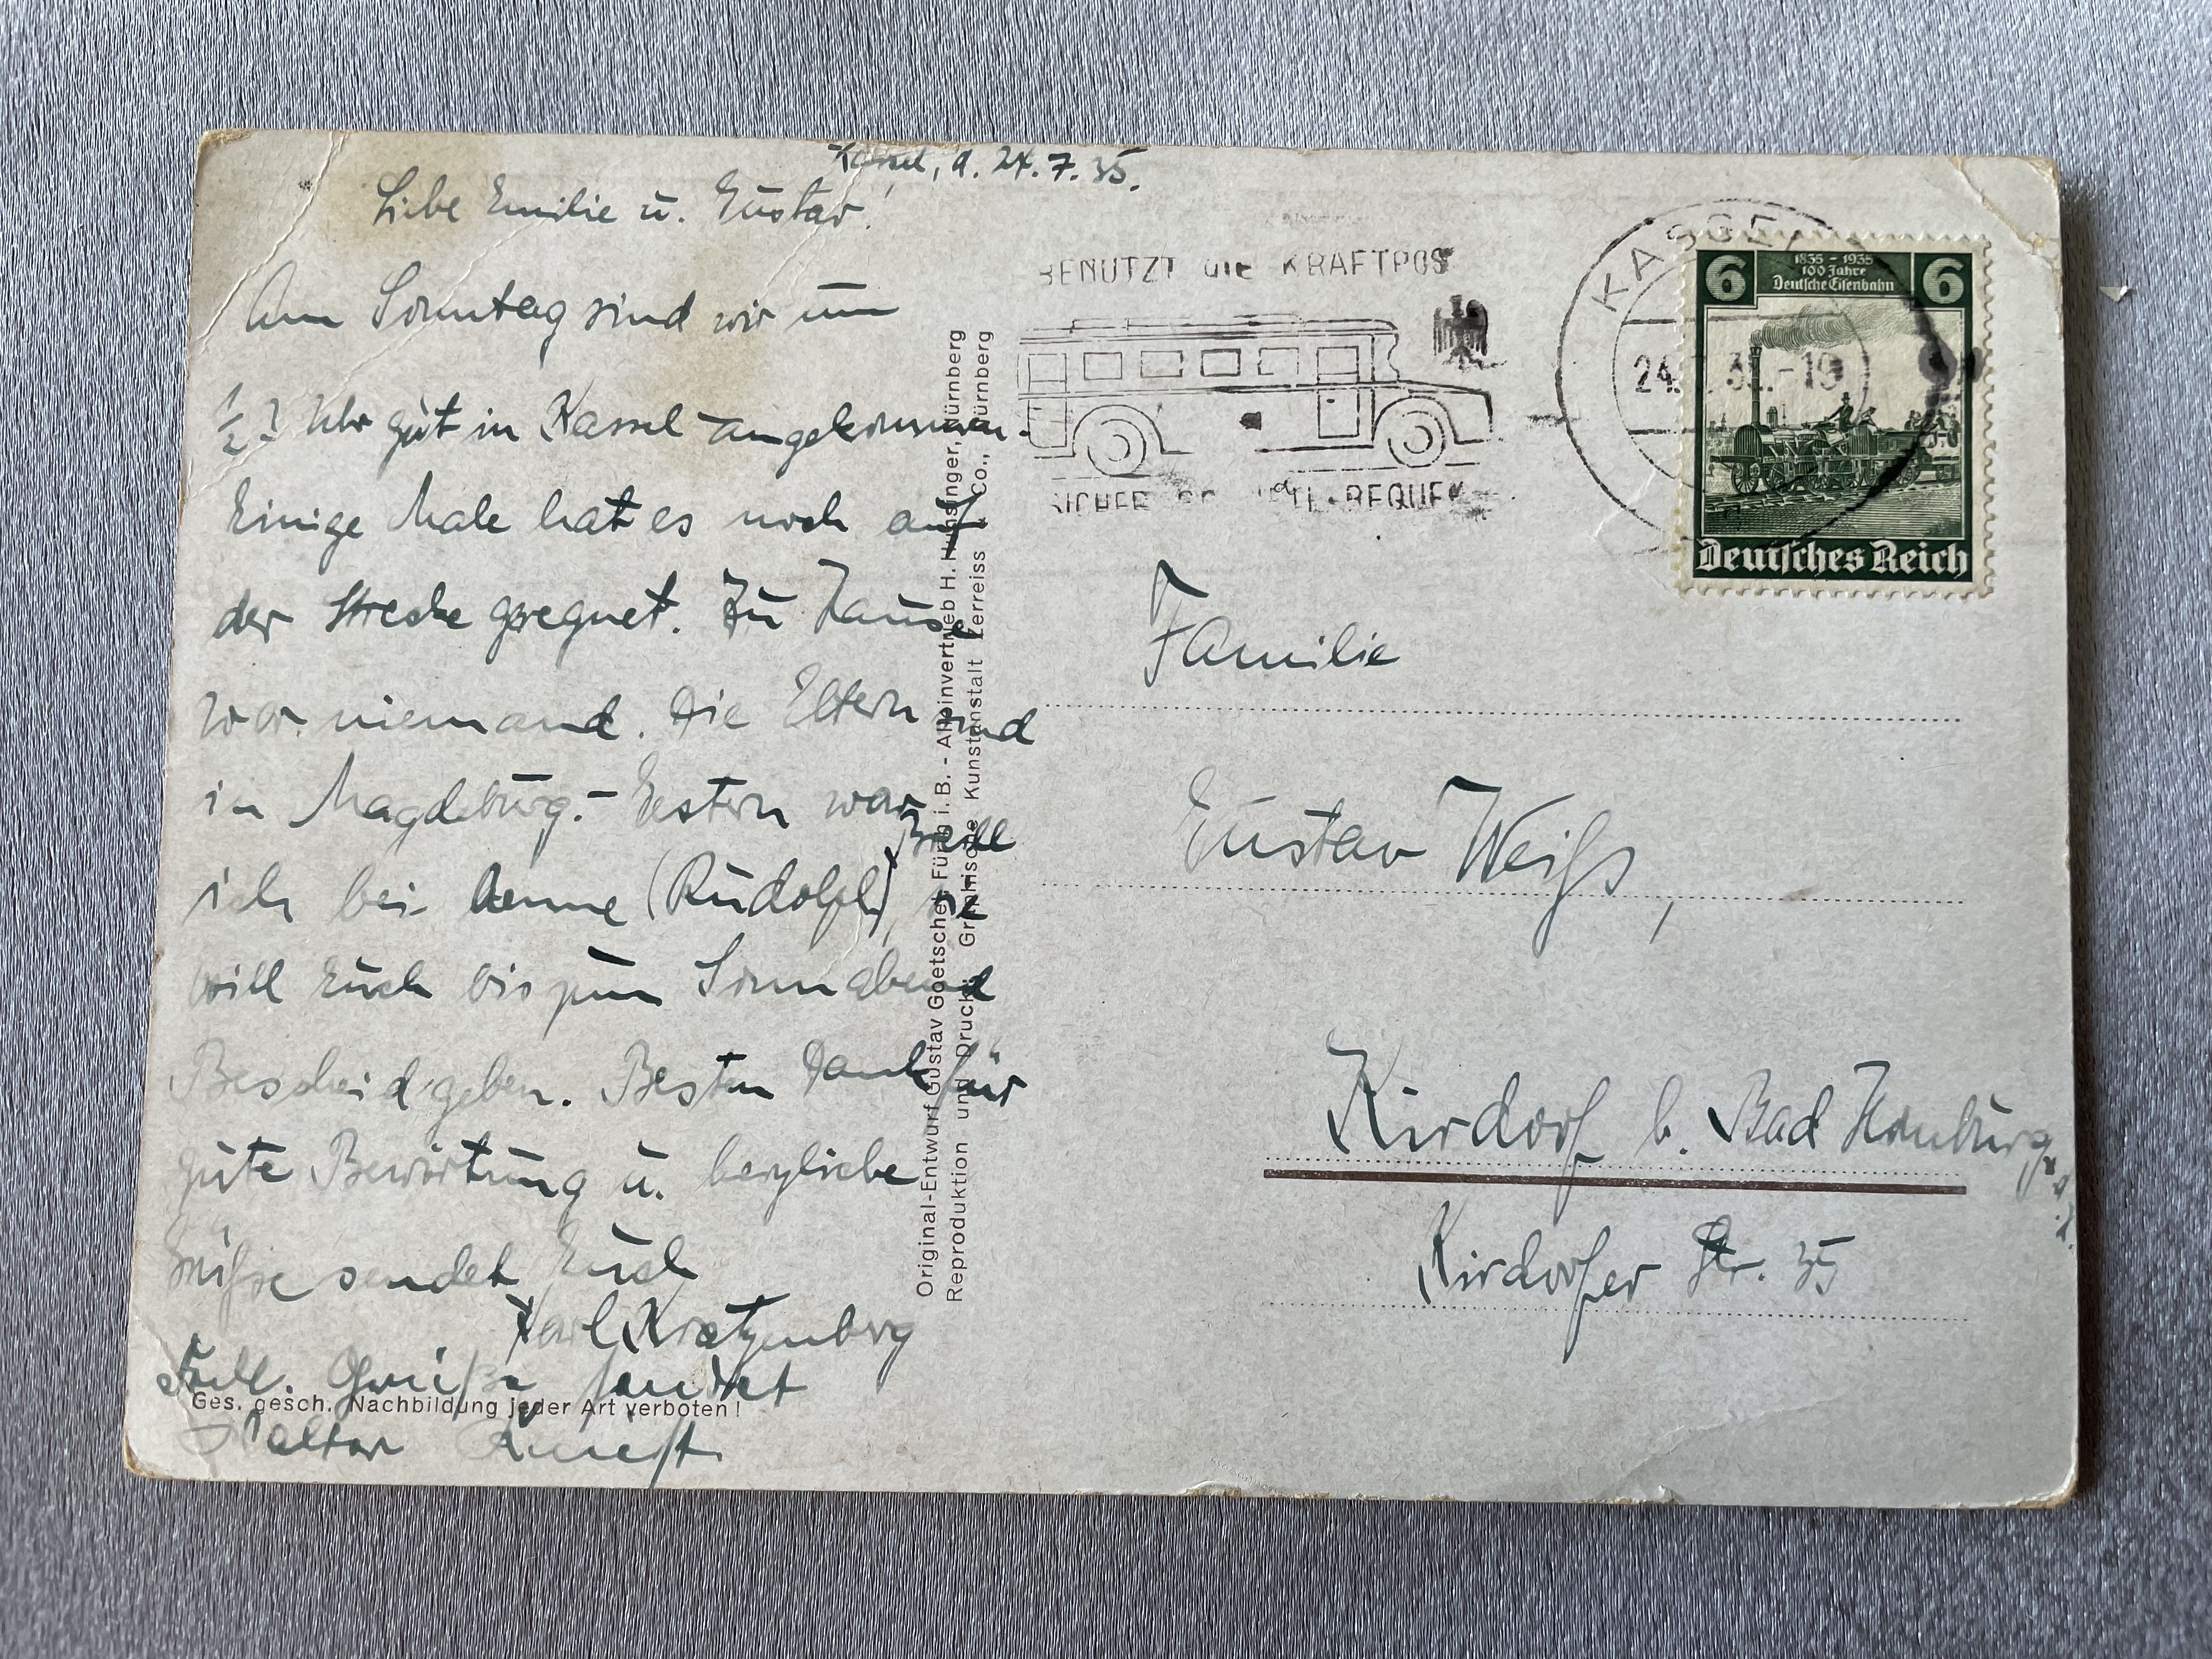 Kassel, d. 24.7.35.
Liebe Emilie u. Gustav!
Am Sonntag sind wir um
½ Uhr gut in Kassel angekommen.
Einige Male hat es noch auf
der Strecke geregnet. Zu Hause
war niemand. Die Eltern sind
in Magdeburg. - Gestern war
ich bei Aenne (Rudolph),
will Euch bis zum Sonnabend
Bescheid geben. Besten Dank für
gute Bewirtung u. herzliche
Grüße sendet Euch
Karl Kratzenberg
Grüße sendet
Walter
Ges. gesch. Nachbildung jeder Art verboten!
Original-Entwurf Gustav Goetschel Fürth i. B. - Alleinvertrieb H. Hunsinger, Nürnberg
Reproduktion und Druck: Graphische Kunstanstalt Zerreiss & Co., Nürnberg
BENUTZT die KRAFTPOS
SICHER BEQUEM
KASSEL
24. 35.-19
6 1835-1935 6
100 Jahre
Deutsche Eisenbahn
Deutsches Reich
Familie
Gustav Weiss,
Kirdorf b. Bad Homburg
Kirdorfer Str. 35